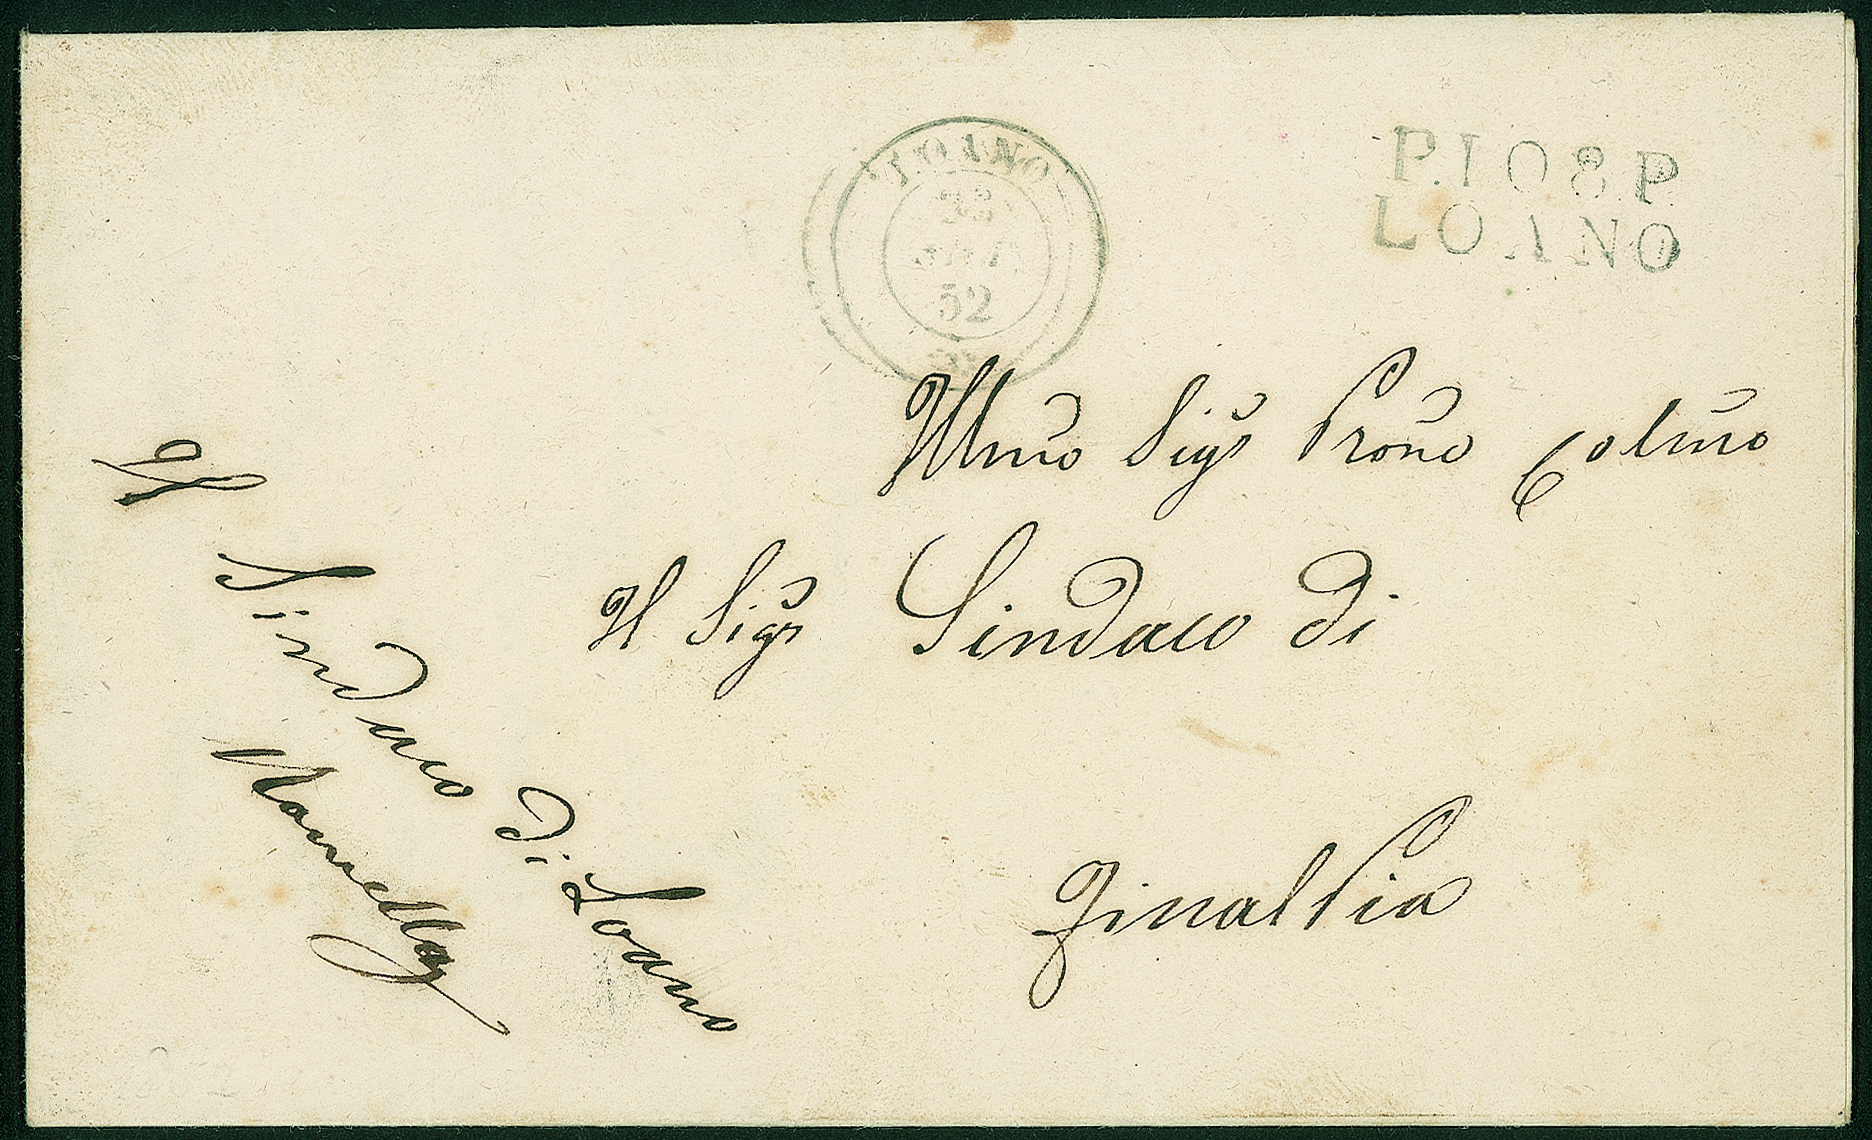 LOANO
52
P.108.P.
LOANO
Illmo Sigr Prone Colmo
Il Sigr Sindaco di
FinalPia
Il Sindaco di Loano